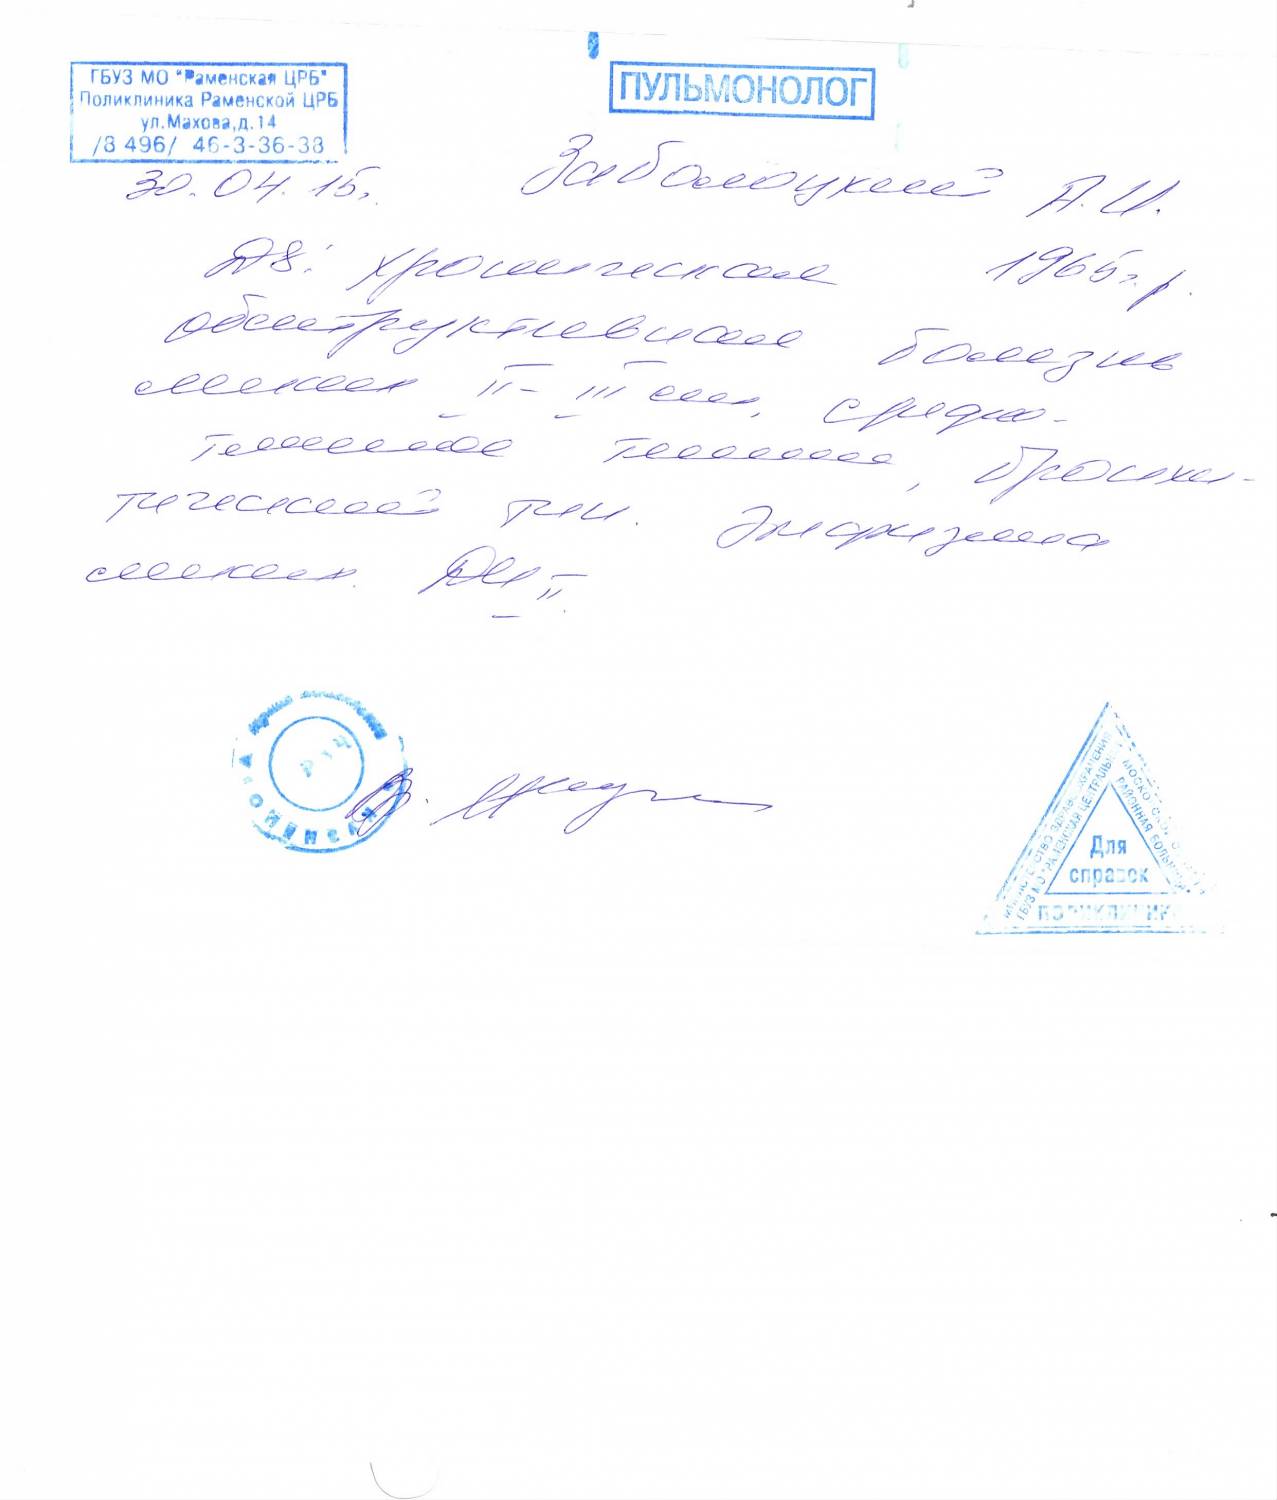 ГБУЗ МО "Раменская ЦРБ"
Поликлиника Раменской ЦРБ
ул.Махова,д.14
/8 496/ 46-3-36-38
ПУЛЬМОНОЛОГ
30.04.15г.
Заболоцкий А.И.
1965г.р.
Ds: хроническая
обструктивная болезнь
легких II-III ст, средне-
тяжелое течение, бронхи-
тический тип. Эмфизема
легких. ДН II.
МИНИСТЕРСТВО ЗДРАВООХРАНЕНИЯ
МОСКОВСКОЙ
ГБУЗ МО РАМЕНСКАЯ ЦЕНТРАЛЬНАЯ
РАЙОННАЯ БОЛЬНИЦА
Для
справок
ПОЛИКЛИНИКА